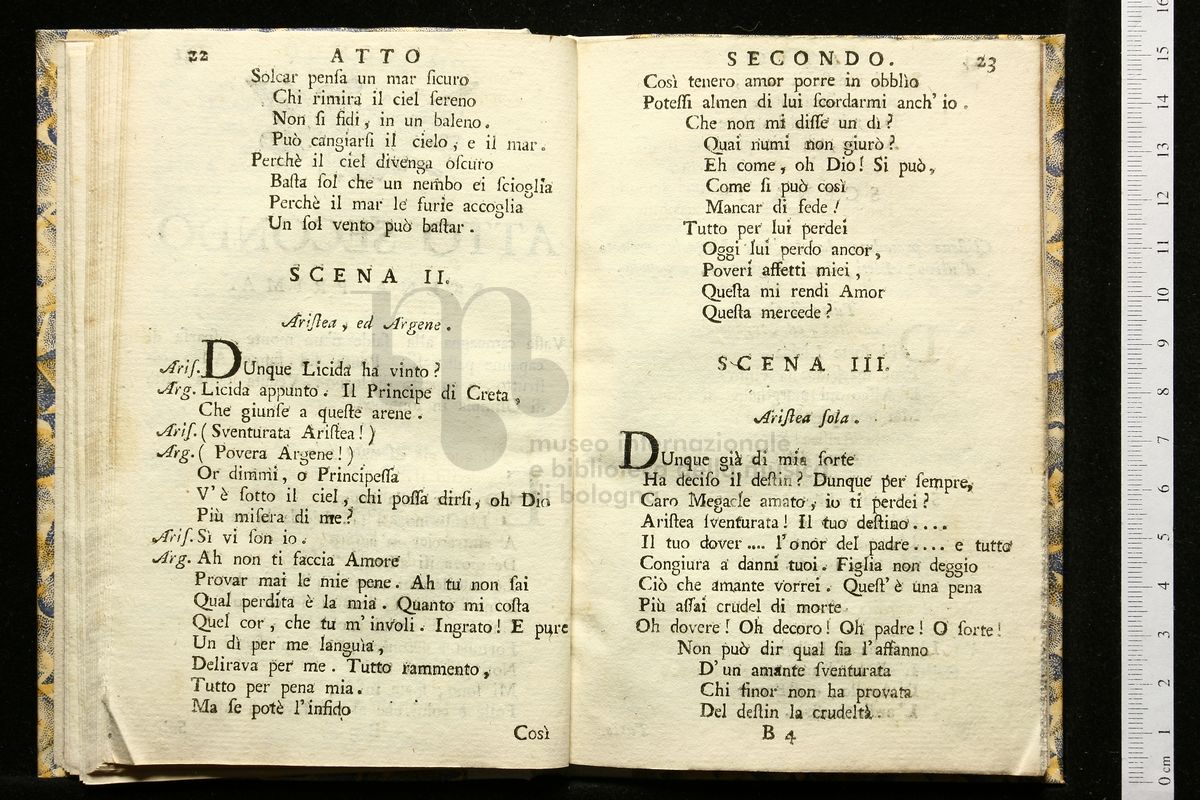 22
ATTO
Solcar penſa un mar ſicuro
Chi rimira il ciel ſereno
Non ſi fidi, in un baleno.
Può cangiarſi il cielo, e il mar.
Perchè il ciel divenga oſcuro
Baſta ſol che un nembo ei ſcioglia
Perchè il mar le furie accoglia
Un ſol vento può baſtar.
SCENA II.
Ariſtea, ed Argene.
Ariſ. DUnque Licida ha vinto?
Arg. Licida appunto. Il Principe di Creta,
Che giunſe a queſte arene.
Ariſ. (Sventurata Ariſtea!)
Arg. (Povera Argene!)
Or dimmi, o Principeſſa
V'è ſotto il ciel, chi poſſa dirſi, oh Dio
Più miſera di me?
Ariſ. Sì vi ſon io.
Arg. Ah non ti faccia Amore
Provar mai le mie pene. Ah tu non ſai
Qual perdita è la mia. Quanto mi coſta
Quel cor, che tu m'involi. Ingrato! E pure
Un dì per me languìa,
Delirava per me. Tutto rammento,
Tutto per pena mia.
Ma ſe potè l'infido
Così
SECONDO.
23
Così tenero amor porre in obblìo
Poteſſi almen di lui ſcordarmi anch' io.
Che non mi diſſe un dì?
Quai numi non giurò?
Eh come, oh Dio! Si può,
Come ſi può così
Mancar di fede!
Tutto per lui perdei
Oggi lui perdo ancor,
Poveri affetti miei,
Queſta mi rendi Amor
Queſta mercede?
SCENA III.
Ariſtea ſola.
DUnque già di mia ſorte
Ha deciſo il deſtin? Dunque per ſempre,
Caro Megacle amato, io ti perdei?
Ariſtea ſventurata! Il tuo deſtino....
Il tuo dover.... l'onor del padre.... e tutto
Congiura a danni tuoi. Figlia non deggio
Ciò che amante vorrei. Queſt' è una pena
Più aſſai crudel di morte
Oh dovere! Oh decoro! Oh padre! O ſorte!
Non può dir qual ſia l'affanno
D'un amante ſventurata
Chi finor non ha provata
Del deſtin la crudeltà.
B 4
museo internazionale
e biblioteca della musica
di bologna